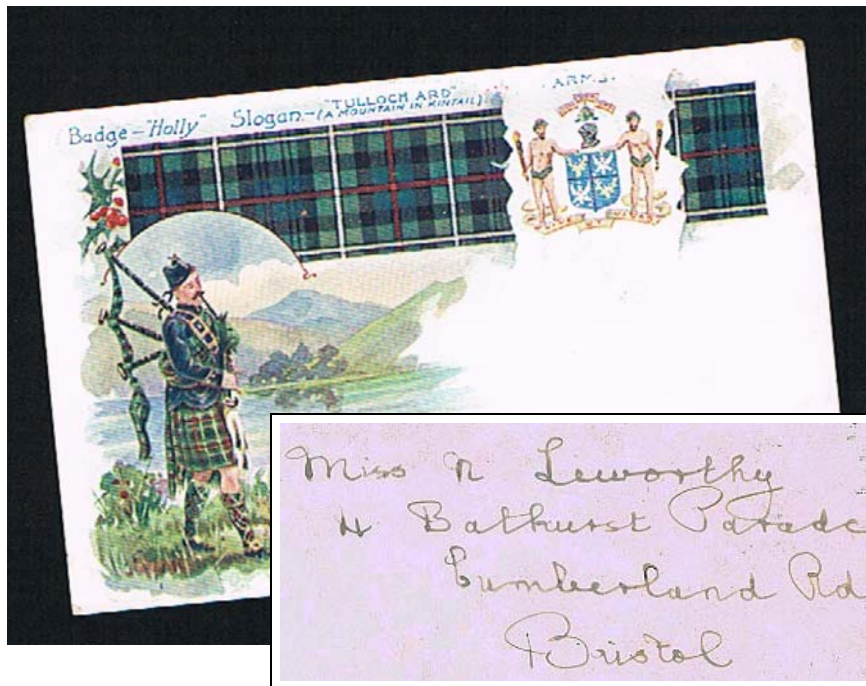 Badge – "Holly" Slogan – "TULLOCH ARD"
(A MOUNTAIN IN KINTAIL)
ARMS.
Miss N Leworthy
4 Bathurst Parade
Cumberland Rd
Bristol